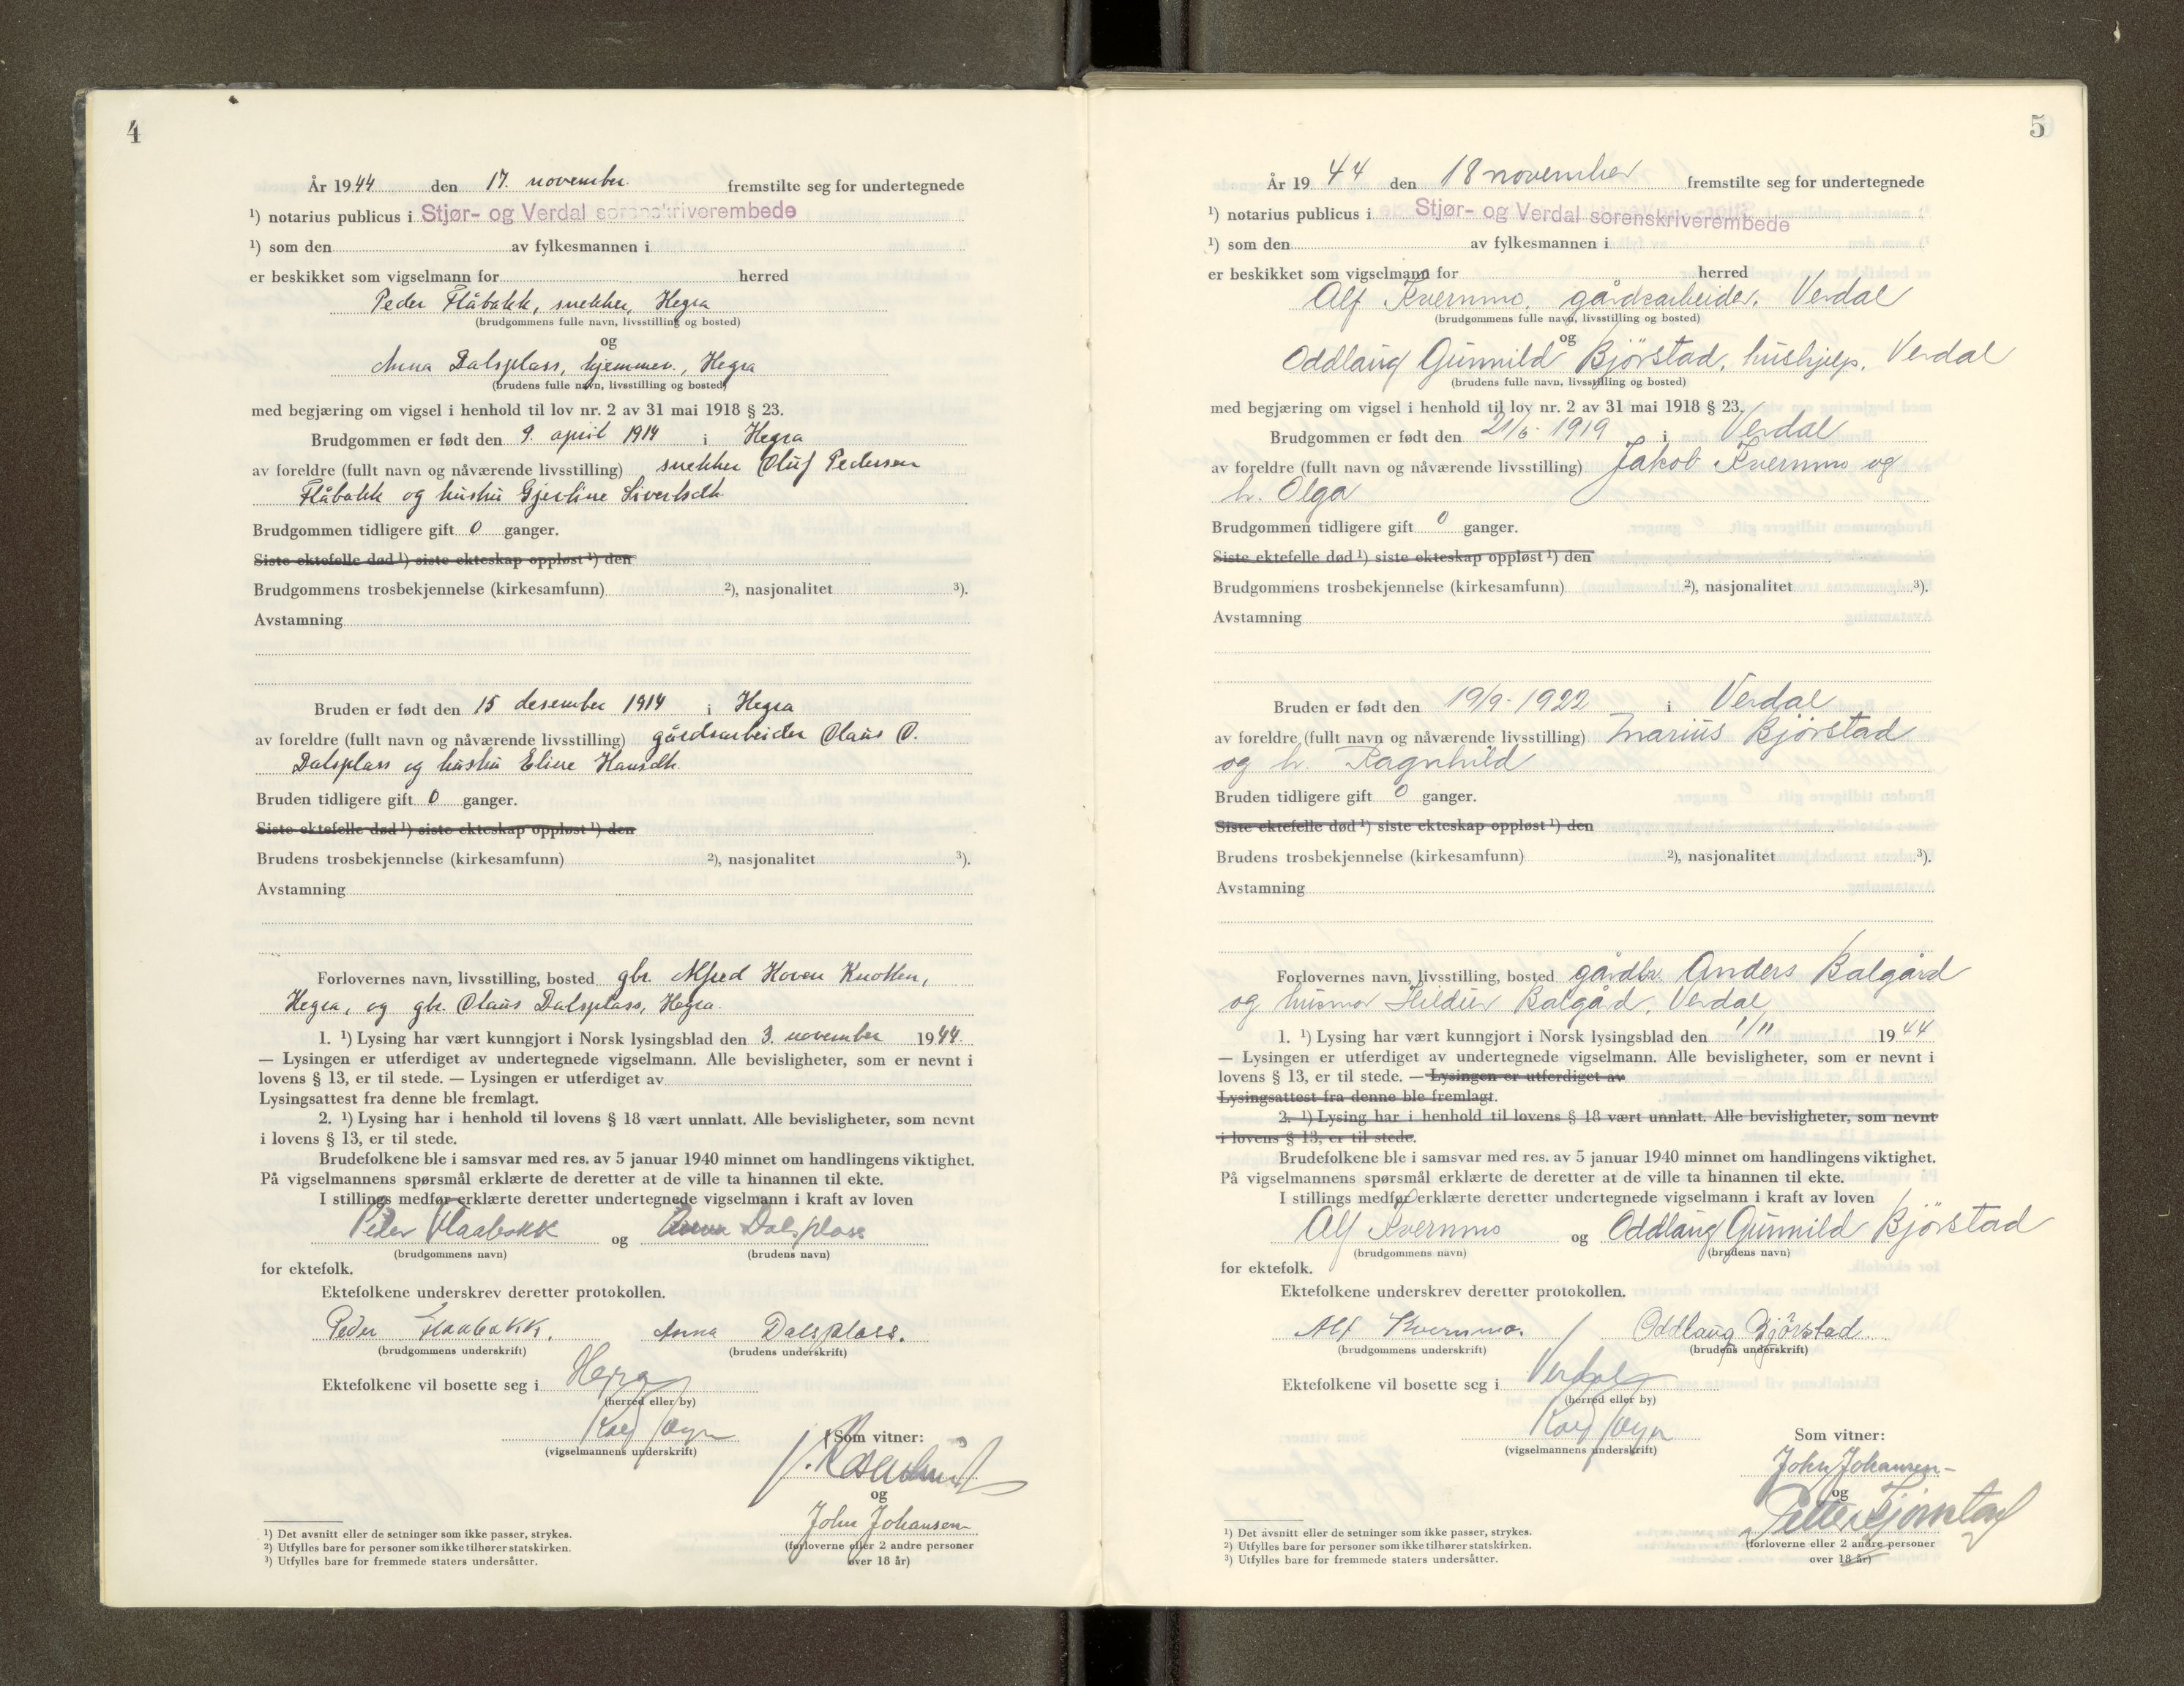 4
År 1944 den 17. november fremstilte seg for undertegnede
¹) notarius publicus i Stjør- og Verdal sorenskriverembede
¹) som den av fylkesmannen i
er beskikket som vigselmann for herred
Peder Flåbakk, snekker, Hegra
(brudgommens fulle navn, livsstilling og bosted)
og
Anna Dalsplass, hjemmev., Hegra
(brudens fulle navn, livsstilling og bosted)
med begjæring om vigsel i henhold til lov nr. 2 av 31 mai 1918 § 23.
Brudgommen er født den 9. april 1914 i Hegra
av foreldre (fullt navn og nåværende livsstilling) snekker Oluf Pedersen
Flåbakk og hustru Gjertine Sivertsdtr.
Brudgommen tidligere gift 0 ganger.
Siste ektefelle død ¹) siste ekteskap oppløst ¹) den
Brudgommens trosbekjennelse (kirkesamfunn) ²), nasjonalitet ³).
Avstamning
Bruden er født den 15 desember 1914 i Hegra
av foreldre (fullt navn og nåværende livsstilling) gårdsarbeider Claus O.
Dalsplass og hustru Eline Hansdtr.
Bruden tidligere gift 0 ganger.
Siste ektefelle død ¹) siste ekteskap oppløst ¹) den
Brudens trosbekjennelse (kirkesamfunn) ²), nasjonalitet ³).
Avstamning
Forlovernes navn, livsstilling, bosted gbr. Alfred Hoven Knotten,
Hegra, og gbr. Claus Dalsplass, Hegra.
1. ¹) Lysing har vært kunngjort i Norsk lysingsblad den 3. november 1944.
— Lysingen er utferdiget av undertegnede vigselmann. Alle bevisligheter, som er nevnt i
lovens § 13, er til stede. — Lysingen er utferdiget av
Lysingsattest fra denne ble fremlagt.
2. ¹) Lysing har i henhold til lovens § 18 vært unnlatt. Alle bevisligheter, som nevnt
i lovens § 13, er til stede.
Brudefolkene ble i samsvar med res. av 5 januar 1940 minnet om handlingens viktighet.
På vigselmannens spørsmål erklærte de deretter at de ville ta hinannen til ekte.
I stillings medfør erklærte deretter undertegnede vigselmann i kraft av loven
Peder Flaabakk og Anna Dalsplass
(brudgommens navn) (brudens navn)
for ektefolk.
Ektefolkene underskrev deretter protokollen.
Peder Flaabakk. Anna Dalsplass.
(brudgommens underskrift) (brudens underskrift)
Ektefolkene vil bosette seg i Hegra
(herred eller by)
(vigselmannens underskrift)
Som vitner:
og
John Johansen
(forloverne eller 2 andre personer
over 18 år)
¹) Det avsnitt eller de setninger som ikke passer, strykes.
²) Utfylles bare for personer som ikke tilhører statskirken.
³) Utfylles bare for fremmede staters undersåtter.
5
År 1944 den 18 november fremstilte seg for undertegnede
¹) notarius publicus i Stjør- og Verdal sorenskriverembede
¹) som den av fylkesmannen i
er beskikket som vigselmann for herred
Alf Kvernmo, gårdsarbeider, Verdal
(brudgommens fulle navn, livsstilling og bosted)
og
Oddlaug Gunnild Bjørstad, hushjelp, Verdal
(brudens fulle navn, livsstilling og bosted)
med begjæring om vigsel i henhold til lov nr. 2 av 31 mai 1918 § 23.
Brudgommen er født den 21/6-1919 i Verdal
av foreldre (fullt navn og nåværende livsstilling) Jakob Kvernmo og
h. Olga
Brudgommen tidligere gift 0 ganger.
Siste ektefelle død ¹) siste ekteskap oppløst ¹) den
Brudgommens trosbekjennelse (kirkesamfunn) ²), nasjonalitet ³).
Avstamning
Bruden er født den 19/9-1922 i Verdal
av foreldre (fullt navn og nåværende livsstilling) Marius Bjørstad
og h. Ragnhild
Bruden tidligere gift 0 ganger.
Siste ektefelle død ¹) siste ekteskap oppløst ¹) den
Brudens trosbekjennelse (kirkesamfunn) ²), nasjonalitet ³).
Avstamning
Forlovernes navn, livsstilling, bosted gårdbr. Anders Balgård
og husmor Hildur Balgård, Verdal
1. ¹) Lysing har vært kunngjort i Norsk lysingsblad den 1/11 1944
— Lysingen er utferdiget av undertegnede vigselmann. Alle bevisligheter, som er nevnt i
lovens § 13, er til stede. — Lysingen er utferdiget av
Lysingsattest fra denne ble fremlagt.
2. ¹) Lysing har i henhold til lovens § 18 vært unnlatt. Alle bevisligheter, som nevnt
i lovens § 13, er til stede.
Brudefolkene ble i samsvar med res. av 5 januar 1940 minnet om handlingens viktighet.
På vigselmannens spørsmål erklærte de deretter at de ville ta hinannen til ekte.
I stillings medfør erklærte deretter undertegnede vigselmann i kraft av loven
Alf Kvernmo og Oddlaug Gunnild Bjørstad
(brudgommens navn) (brudens navn)
for ektefolk.
Ektefolkene underskrev deretter protokollen.
Alf Kvernmo. / Oddlaug Bjørstad
(brudgommens underskrift) (brudens underskrift)
Ektefolkene vil bosette seg i Verdal
(herred eller by)
(vigselmannens underskrift)
Som vitner:
John Johansen
og
Petter
(forloverne eller 2 andre personer
over 18 år)
¹) Det avsnitt eller de setninger som ikke passer, strykes.
²) Utfylles bare for personer som ikke tilhører statskirken.
³) Utfylles bare for fremmede staters undersåtter.